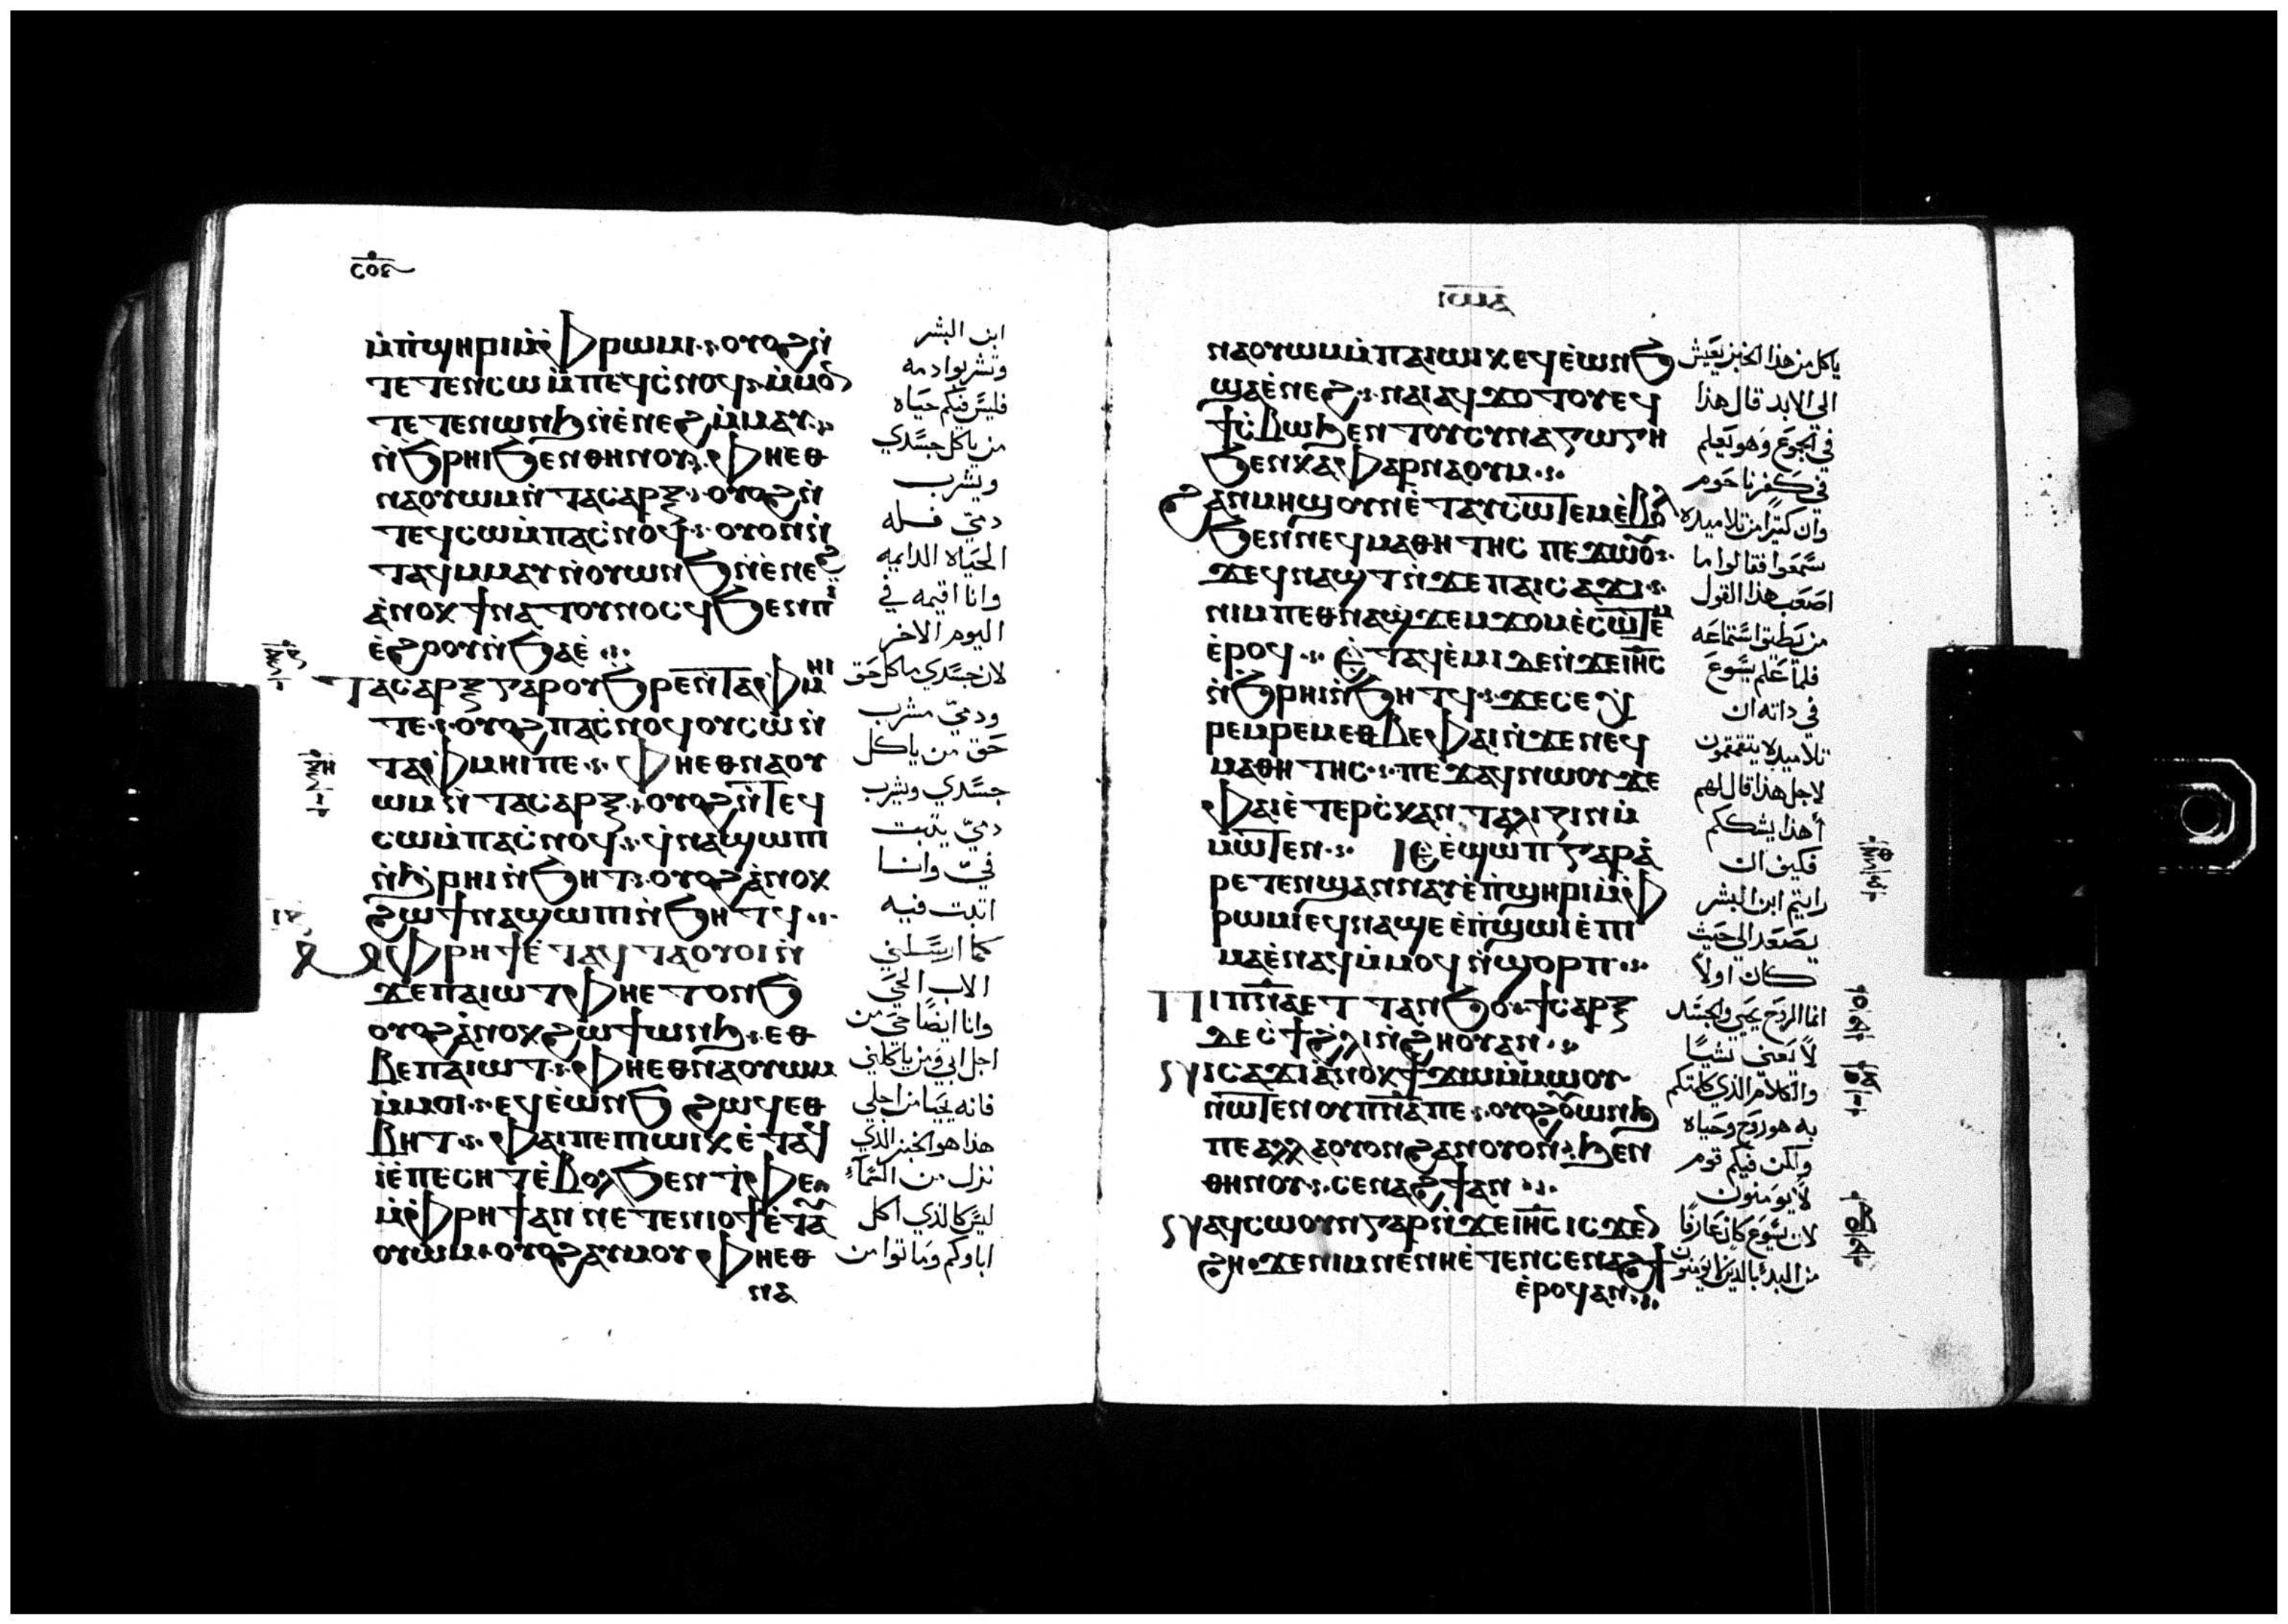 ⲙ̀ⲡ̀ϣⲏⲣⲓ ⲙ̀ⲫ̀ⲣⲱⲙⲓ· ⲟⲩⲟϩ ⲛ̀
ⲧⲉⲧⲉⲛⲥⲱ ⲙ̀ⲡⲉϥⲥ̀ⲛⲟϥ· ⲙ̀ⲙⲟⲛ
ⲧⲉⲧⲉⲛ ⲱⲛϧ ⲛ̀ⲉ̀ⲛⲉϩ ⲙ̀ⲙⲁⲩ·
ⲛ̀ϧⲣⲏⲓ ϧⲉⲛ ⲑⲏⲛⲟⲩ· ⲫⲏⲉⲑ
ⲛⲁⲟⲩⲱⲙ ⲛ̀ⲧⲁⲥⲁⲣⲝ· ⲟⲩⲟϩ ⲛ̀
ⲧⲉϥⲥⲱ ⲙ̀ⲡⲁⲥ̀ⲛⲟϥ· ⲟⲩⲟⲛ ⲛ̀
ⲧⲁϥ ⲙ̀ⲙⲁⲩ ⲛ̀ⲟⲩⲱⲛϧ ⲛ̀ⲉ̀ⲛⲉϩ
ⲁ̀ⲛⲟⲕ ϯⲛⲁⲧⲟⲩⲛⲟⲥϥ ϧⲉⲛ ⲡⲓ
ⲉ̀ϩⲟⲟⲩ ⲛ̀ϧⲁⲉ̀·
ⲧⲁⲥⲁⲣⲝ ⲅⲁⲣ ⲟⲩϧⲣⲉ ⲛ̀ⲧⲁⲫⲙⲏⲓ
ⲧⲉ· ⲟⲩⲟϩ ⲡⲁⲥ̀ⲛⲟϥ ⲟⲩⲥⲱ ⲛ̀
ⲧⲁⲫⲙⲏⲓ ⲡⲉ· ⲫⲏⲉⲑⲛⲁⲟⲩ
ⲱⲙ ⲛ̀ⲧⲁⲥⲁⲣⲝ· ⲟⲩⲟϩ ⲛ̀ⲧⲉϥ
ⲥⲱ ⲙ̀ⲡⲁⲥ̀ⲛⲟϥ· ϥ̀ⲛⲁϣⲱⲡⲓ
ⲛ̀ϧⲣⲏⲓ ⲛ̀ϧⲏⲧ· ⲟⲩⲟϩ ⲁ̀ⲛⲟⲕ
ϩⲱ ϯⲛⲁϣⲱⲡⲓ ⲛ̀ϧⲏⲧϥ·
ⲙ̀ⲫ̀ⲣⲏϯ ⲉ̀ⲧⲁϥⲧⲁⲟⲩⲟⲓ ⲛ̀
ϫⲉ ⲡⲁⲓⲱⲧ ⲫⲏⲉⲧⲟⲛϧ
ⲟⲩⲟϩ ⲁ̀ⲛⲟⲕ ϩⲱ ϯⲱⲛϧ· ⲉⲑ
ⲃⲉ ⲡⲁⲓⲱⲧ· ⲫⲏⲉⲑⲛⲁⲟⲩⲱⲙ
ⲙ̀ⲙⲟⲓ· ⲉϥⲉ̀ⲱⲛϧ ϩⲱϥ ⲉⲑ
ⲃⲏⲧ· ⲫⲁⲓ ⲡⲉ ⲡⲓⲱⲓⲕ ⲉ̀ⲧⲁϥ
ⲓ̀ ⲉ̀ⲡⲉⲥⲏⲧ ⲉ̀ⲃⲟⲗ ϧⲉⲛ ⲧ̀ⲫⲉ
ⲙ̀ⲫ̀ⲣⲏϯ ⲁⲛ ⲛⲉⲧⲉⲛⲓⲟϯ ⲉ̀ⲧⲁⲩ
ⲟⲩⲱⲙ· ⲟⲩⲟϩ ⲁⲩⲙⲟⲩ ⲫⲏⲉⲑ
ⲛⲁ
ابن البشر
وتشربوا دمه
فليس فيكم حياه
من ياكل جسدي
ويشرب
دمي فله
الحياه الدايمه
وانا اقيمه في
اليوم الاخر
لان جسدي ماكل حق
ودمي مشرب
حق من ياكل
جسدي ويشرب
دمي يثبت
في وانا
اثبت فيه
كما ارسلني
الاب الحي
وانا ايضا حي من
اجل ابي ومن ياكلني
فانه يحيا من اجلي
هذا هو الخبز الذي
نزل من السماء
ليس كالذي اكل
اباوكم وماتوا من
ⲛⲁⲟⲩⲱⲙ ⲙ̀ⲡⲁⲓⲱⲓⲕ ⲉϥⲉ̀ⲱⲛϧ
ϣⲁ ⲉ̀ⲛⲉϩ· ⲛⲁⲓ ⲁϥϫⲟⲧⲟⲩ ⲉϥ
ϯⲥ̀ⲃⲱ ϧⲉⲛ ⲧⲟⲩⲥⲩⲛⲁⲅⲱⲅⲏ
ϧⲉⲛ ⲕⲁⲫⲁⲣⲛⲁⲟⲩⲙ·
ϩⲁⲛⲙⲏϣ ⲟⲩⲛ ⲉ̀ⲧⲁⲩⲥⲱⲧⲉⲙ ⲉ̀ⲃⲟⲗ
ϧⲉⲛ ⲛⲉϥⲙⲁⲑⲏⲧⲏⲥ ⲡⲉϫⲱⲟⲩ·
ϫⲉ ϥⲛⲁϣⲧ ⲛ̀ϫⲉ ⲡⲁⲓⲥⲁϫⲓ·
ⲛⲓⲙ ⲡⲉⲑⲛⲁϣϫⲉⲙϫⲟⲙ ⲉ̀ⲥⲱⲧⲉⲙ
ⲉ̀ⲣⲟϥ· ⲉ̀ⲧⲁϥⲉ̀ⲙⲓ ⲇⲉ ⲛ̀ϫⲉ ⲓⲏⲥ
ⲛ̀ϧⲣⲏⲓ ⲛ̀ϧⲏⲧϥ· ϫⲉ ⲥⲉⲭ
ⲣⲉⲙⲣⲉⲙ ⲉⲑⲃⲉ ⲫⲁⲓ ⲛ̀ϫⲉ ⲛⲉϥ
ⲙⲁⲑⲏⲧⲏⲥ· ⲡⲉϫⲁϥ ⲛⲱⲟⲩ ϫⲉ
ⲫⲁⲓ ⲉⲧⲉⲣⲥ̀ⲕⲁⲛⲧⲁⲗⲓⲍⲓⲛ ⲙ̀
ⲙⲱⲧⲉⲛ· ⲓⲉ ⲉ̀ϣⲱⲡ ⲅⲁⲣ ⲁ̀
ⲣⲉⲧⲉⲛϣⲁⲛⲛⲁⲩ ⲉ̀ⲡ̀ϣⲏⲣⲓ ⲙ̀ⲫ
ⲣⲱⲙⲓ ⲉϥⲛⲁϣⲉ ⲉ̀ⲡ̀ϣⲱⲓ ⲉ̀ⲡⲓ
ⲙⲁ ⲉ̀ⲛⲁϥ ⲙ̀ⲙⲟϥ ⲛ̀ϣⲟⲣⲡ·
ⲡⲓⲡⲛⲁ ⲉⲧⲧⲁⲛϧⲟ ϯⲥⲁⲣⲝ
ⲇⲉ ⲥ̀ϯϩⲏⲟⲩ ⲛ̀ϩⲗⲓ ⲁⲛ·
ⲛⲓⲥⲁϫⲓ ⲁ̀ⲛⲟⲕ ϯϫⲱ ⲙ̀ⲙⲱⲟⲩ
ⲛ̀ⲱⲧⲉⲛ ⲟⲩⲡⲛⲁ ⲡⲉ· ⲟⲩⲟϩ ⲟⲩⲱⲛϧ
ⲡⲉ ⲁⲗⲗⲁ ⲟⲩⲟⲛ ϩⲁⲛⲟⲩⲟⲛ ϧⲉⲛ
ⲑⲏⲛⲟⲩ· ⲥⲉⲛⲁϩϯ ⲁⲛ·
ⲛⲁϥⲥⲱⲟⲩⲛ ⲅⲁⲣ ⲛ̀ϫⲉ ⲓⲏⲥ ⲓⲥϫⲉⲛ
ϩⲏ· ϫⲉ ⲛⲓⲙ ⲛⲉ ⲛⲏⲉ̀ⲧⲉⲛⲥⲉⲛⲁϩϯ
ⲉ̀ⲣⲟϥ ⲁⲛ·
ياكل من هذا الخبز يعيش
الي الابد قال هذا
في الجوع وهو يعلم
في كفرناحوم
وان كثيرا من تلاميذه
سمعوا فقالوا ما
اصعب هذا القول
من يطيق استماعه
فلما علم يسوع
في ذاته ان
تلاميذه يتقمقمون
لاجل هذا قال لهم
أهذا يشككم
فكيف ان
رايتم ابن البشر
يصعد الي حيث
كان اولا
انما الروح يحيي والجسد
لا يغني شيا
والكلام الذي كلمتكم
به هو روح وحياه
ولكن فيكم قوم
لا يومنون
لان يسوع كان عارفا
من البدء بالذين لا يومنون